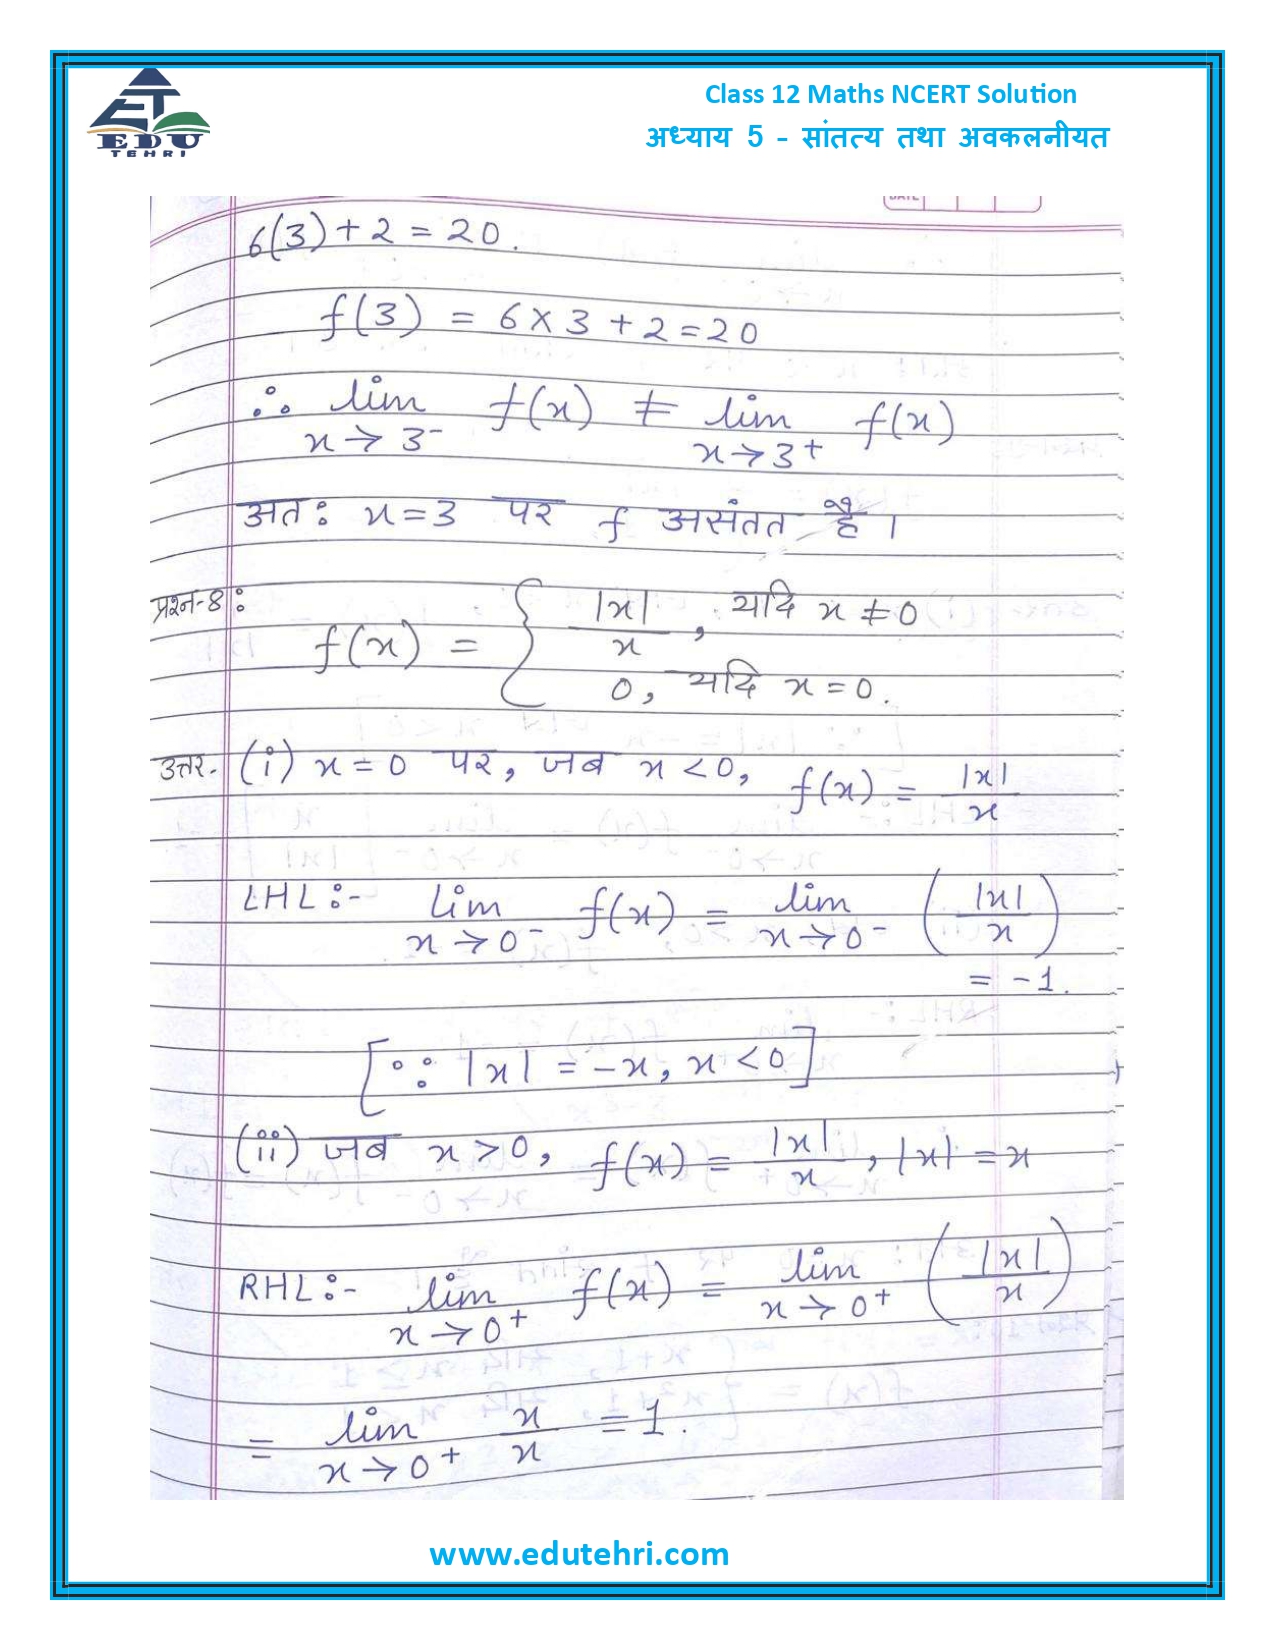 Class 12 Maths NCERT Solution
अध्याय 5 - सांतत्य तथा अवकलनीयत
EDU
TEHRI
DATE
6(3)+2=20.
f(3) = 6×3+2=20
∴ lim x→3⁻ f(x) ≠ lim x→3⁺ f(x)
अत: x=3 पर f असंतत है।
प्रश्न-8: f(x) = { |x|/x, यदि x≠0
0, यदि x=0.
उत्तर- (i) x=0 पर, जब x<0, f(x) = |x|/x
LHL:- lim x→0⁻ f(x) = lim x→0⁻ (|x|/x)
= -1.
[∵ |x| = -x, x<0]
(ii) जब x>0, f(x) = |x|/x, |x| = x
RHL:- lim x→0⁺ f(x) = lim x→0⁺ (|x|/x)
= lim x→0⁺ x/x = 1.
www.edutehri.com